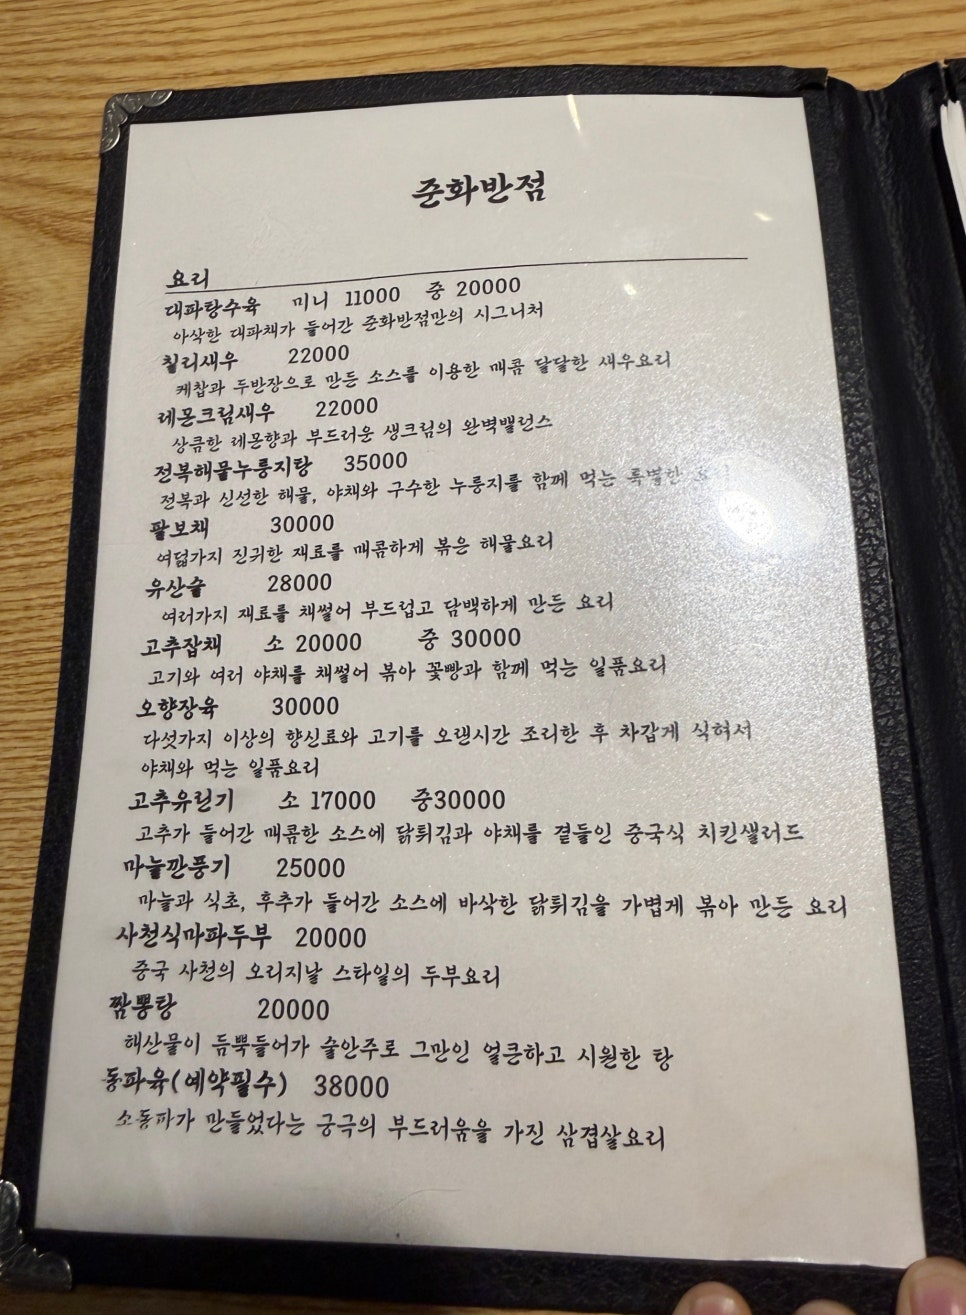 준화반점
요리
대파탕수육 미니 11000 중 20000
아삭한 대파채가 들어간 준화반점만의 시그니처
칠리새우 22000
케찹과 두반장으로 만든 소스를 이용한 매콤 달달한 새우요리
레몬크림새우 22000
상큼한 레몬향과 부드러운 생크림의 완벽밸런스
전복해물누룽지탕 35000
전복과 신선한 해물, 야채와 구수한 누룽지를 함께 먹는 특별한
팔보채 30000
여덟가지 진귀한 재료를 매콤하게 볶은 해물요리
유산슬 28000
여러가지 재료를 채썰어 부드럽고 담백하게 만든 요리
고추잡채 소 20000 중 30000
고기와 여러 야채를 채썰어 볶아 꽃빵과 함께 먹는 일품요리
오향장육 30000
다섯가지 이상의 향신료와 고기를 오랜시간 조리한 후 차갑게 식혀서
야채와 먹는 일품요리
고추유린기 소 17000 중30000
고추가 들어간 매콤한 소스에 닭튀김과 야채를 곁들인 중국식 치킨샐러드
마늘깐풍기 25000
마늘과 식초, 후추가 들어간 소스에 바삭한 닭튀김을 가볍게 볶아 만든 요리
사천식마파두부 20000
중국 사천의 오리지날 스타일의 두부요리
짬뽕탕 20000
해산물이 듬뿍들어가 술안주로 그만인 얼큰하고 시원한 탕
동파육(예약필수) 38000
소동파가 만들었다는 궁극의 부드러움을 가진 삼겹살요리